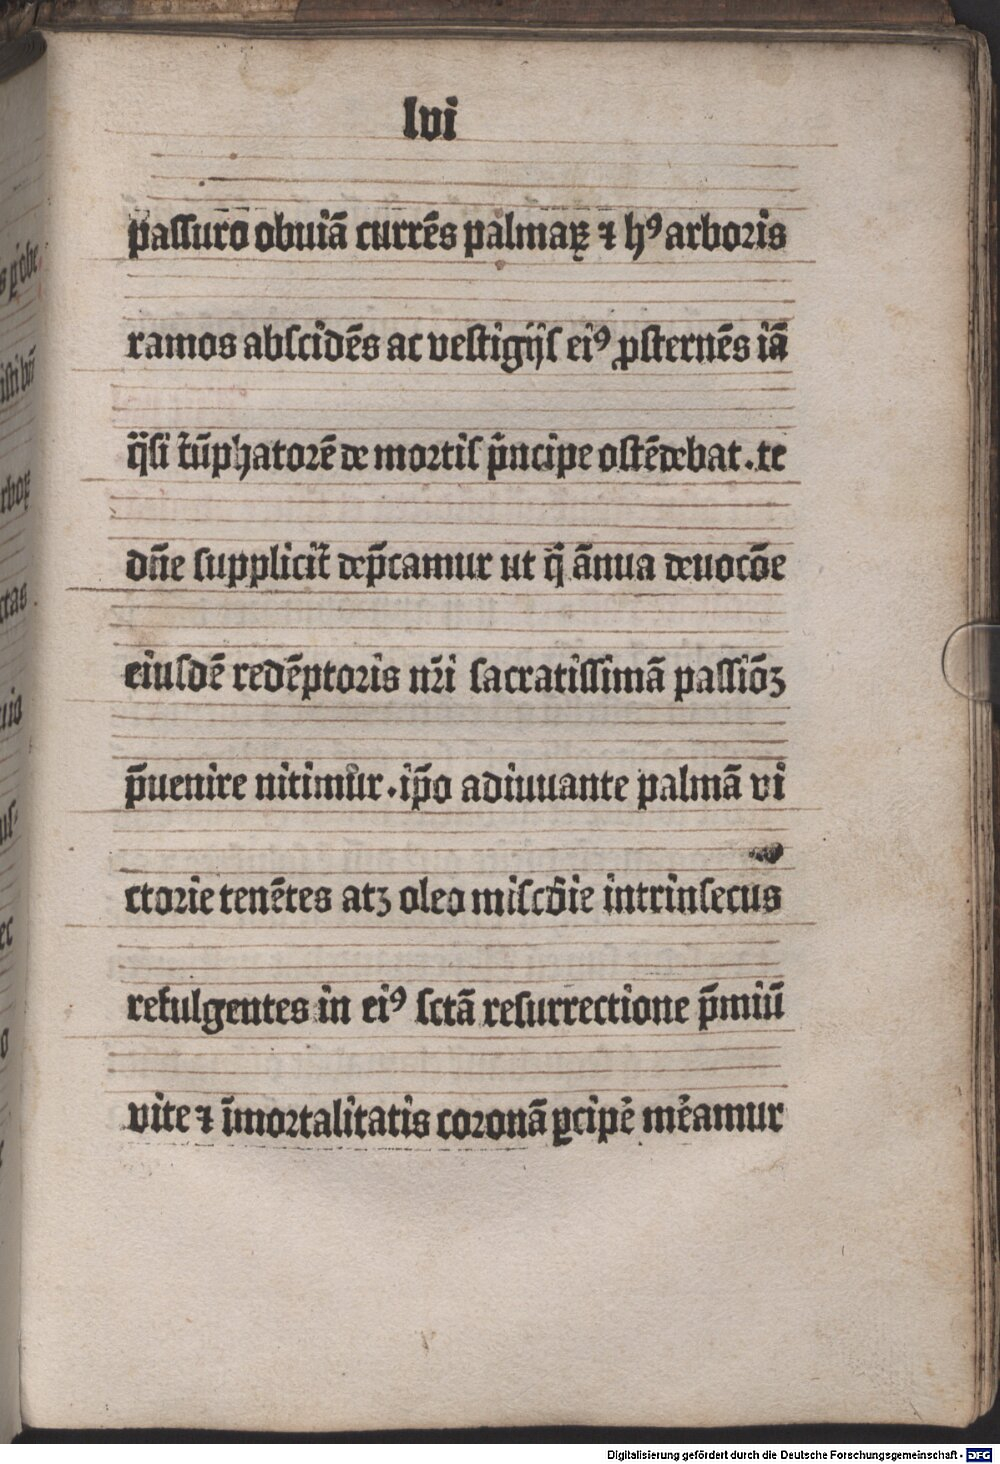 lvi
paſſuro obuiā currēs palmaꝝ ⁊ hꝰ arboris
ramos abſcidēs ac veſtigijſ eiꝰ ꝓſternēs iā
q̈ſi tͥūphatorē de mortiſ pͥncipe oſtēdebat. te
dn̄e ſuppliciṫ dep̄camur ut q̄ ānua deuocōe
eiuſdē redēptoris nr̄i ſacratiſſimā paſſiōꝫ
p̄uenire nitimur. ip̄o adiuuante palmā vi
ctorie tenētes atꝫ oleo miſcd̄ie intrinſecus
refulgentes in eiꝰ ſctā reſurrectione p̄miū
vite ⁊ īmortalitatis coronā ꝑcipē mēamur
Digitalisierung gefördert durch die Deutsche Forschungsgemeinschaft - DFG